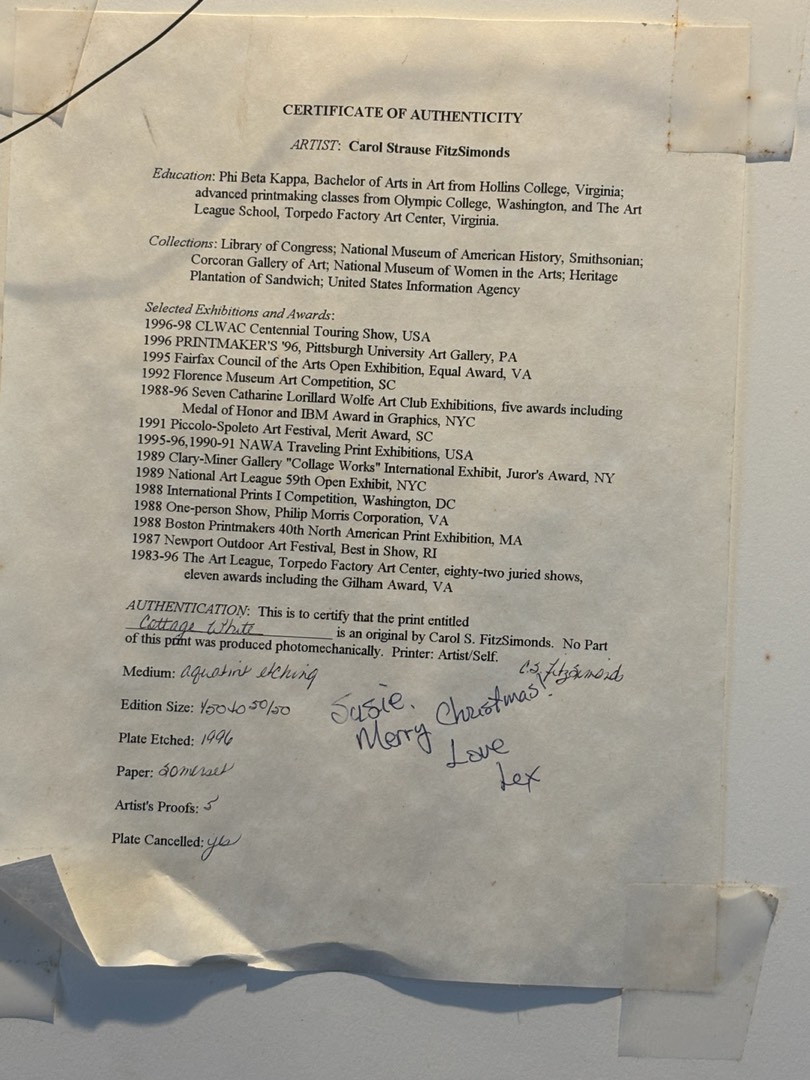 CERTIFICATE OF AUTHENTICITY
ARTIST: Carol Strause FitzSimonds
Education: Phi Beta Kappa, Bachelor of Arts in Art from Hollins College, Virginia;
advanced printmaking classes from Olympic College, Washington, and The Art
League School, Torpedo Factory Art Center, Virginia.
Collections: Library of Congress; National Museum of American History, Smithsonian;
Corcoran Gallery of Art; National Museum of Women in the Arts; Heritage
Plantation of Sandwich; United States Information Agency
Selected Exhibitions and Awards:
1996-98 CLWAC Centennial Touring Show, USA
1996 PRINTMAKER'S '96, Pittsburgh University Art Gallery, PA
1995 Fairfax Council of the Arts Open Exhibition, Equal Award, VA
1992 Florence Museum Art Competition, SC
1988-96 Seven Catharine Lorillard Wolfe Art Club Exhibitions, five awards including
Medal of Honor and IBM Award in Graphics, NYC
1991 Piccolo-Spoleto Art Festival, Merit Award, SC
1995-96,1990-91 NAWA Traveling Print Exhibitions, USA
1989 Clary-Miner Gallery "Collage Works" International Exhibit, Juror's Award, NY
1989 National Art League 59th Open Exhibit, NYC
1988 International Prints I Competition, Washington, DC
1988 One-person Show, Philip Morris Corporation, VA
1988 Boston Printmakers 40th North American Print Exhibition, MA
1987 Newport Outdoor Art Festival, Best in Show, RI
1983-96 The Art League, Torpedo Factory Art Center, eighty-two juried shows,
eleven awards including the Gilham Award, VA
AUTHENTICATION: This is to certify that the print entitled
Cottage White is an original by Carol S. FitzSimonds. No Part
of this print was produced photomechanically. Printer: Artist/Self.
C.S. FitzSimonds
Medium: aquatint etching
Edition Size: 1/50 to 50/50
Plate Etched: 1996
Paper: Somerset
Artist's Proofs: 5
Plate Cancelled: yes
Susie.
Merry Christmas!
Love
Lex